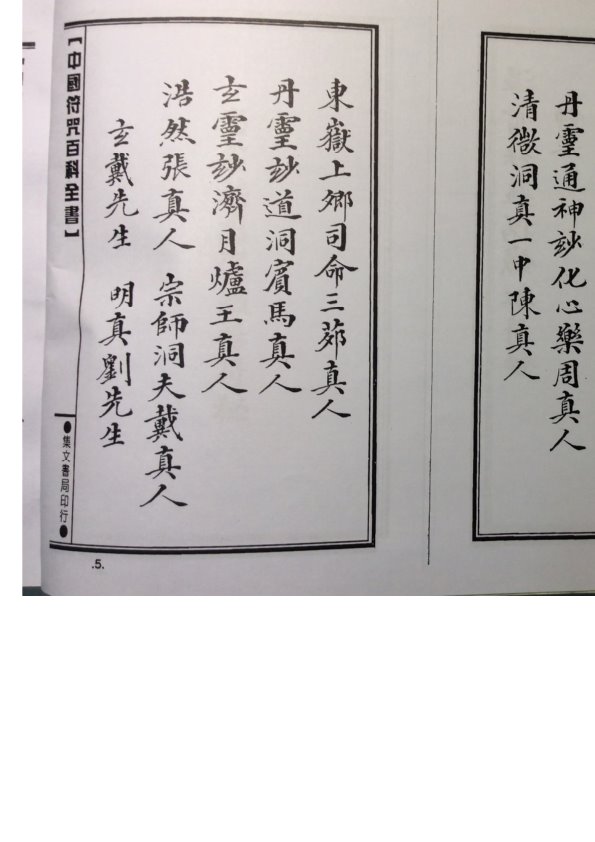 丹靈通神玅化心樂周真人
清微洞真一中陳真人
東嶽上卿司命三茆真人
丹靈玅道洞賓馬真人
玄靈玅濟月爐王真人
浩然張真人 宗師洞夫戴真人
玄戴先生 明真劉先生
【中國符咒百科全書】
●集文書局印行●
.5.